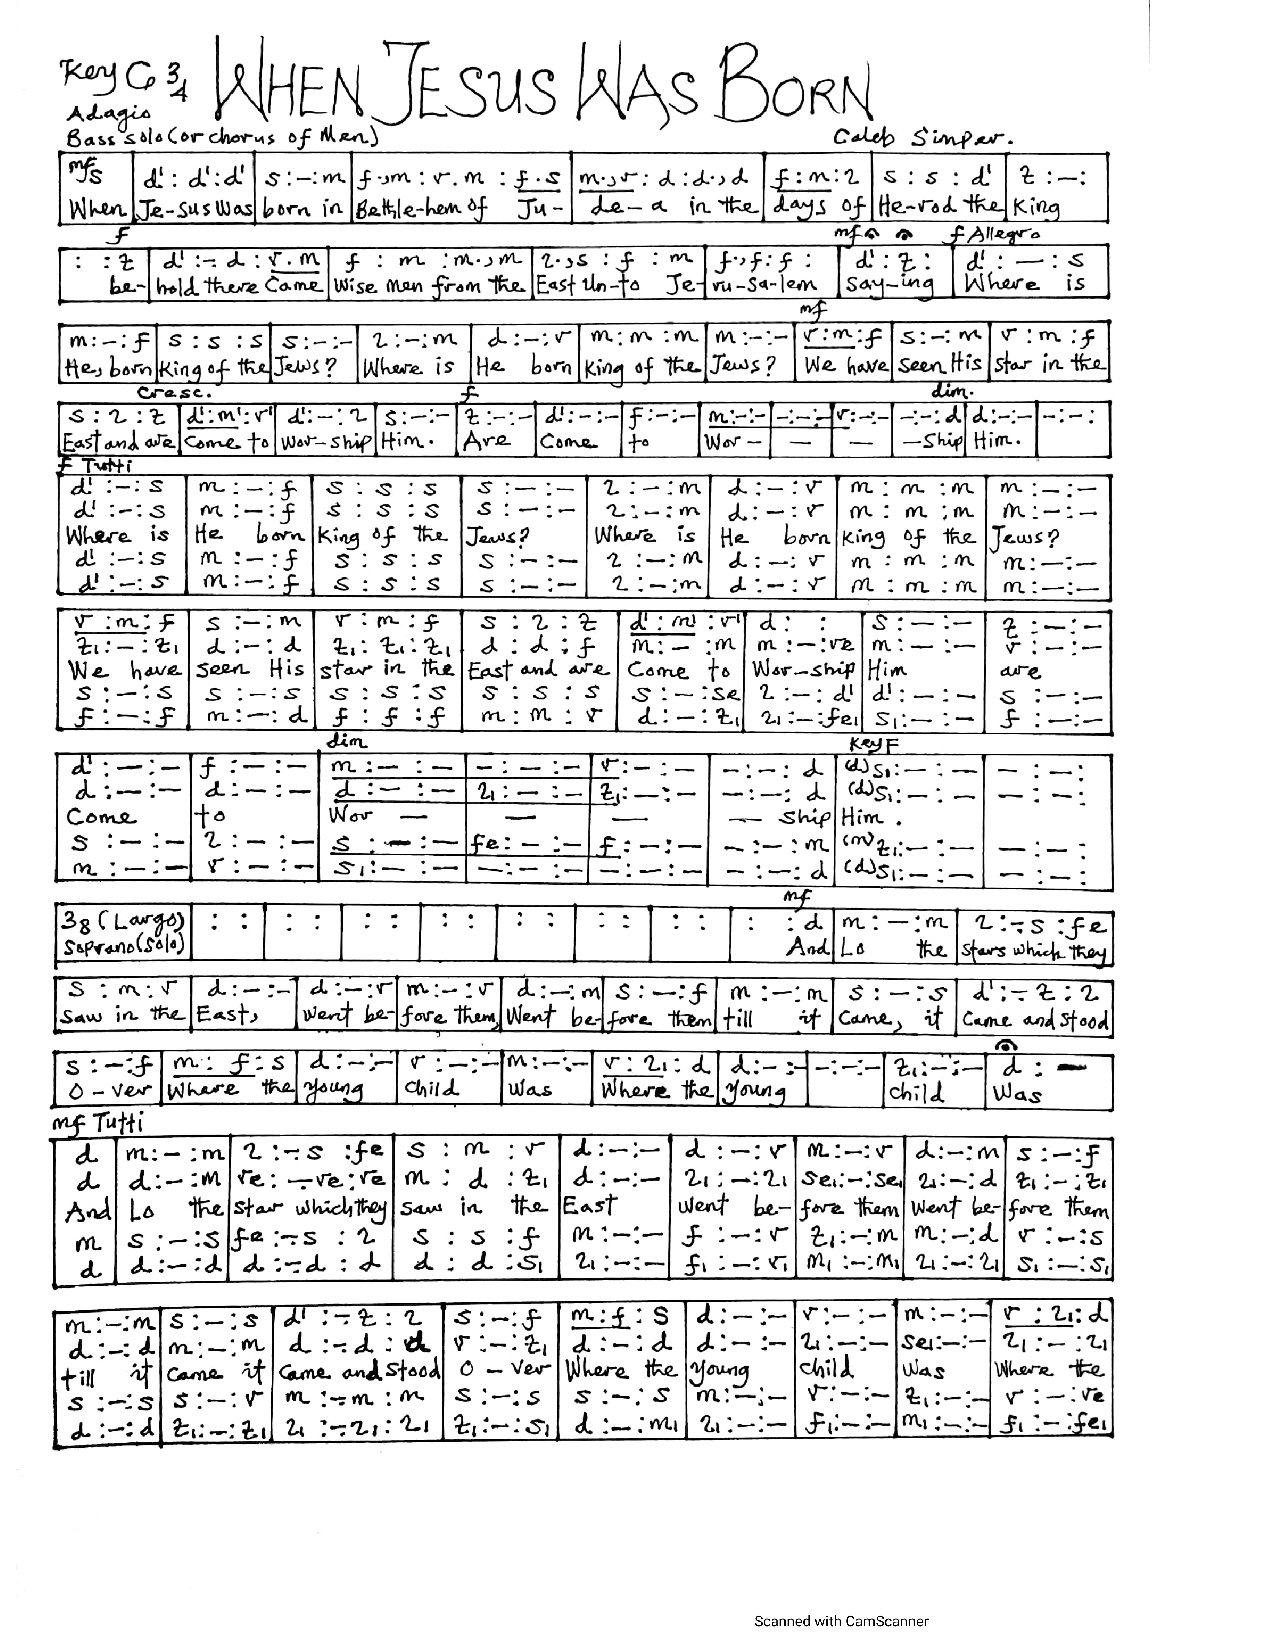 Key C 3/4 WHEN JESUS WAS BORN
Adagio
Bass solo (or chorus of Men) Caleb Simper.
mf
s | d' : d' : d' | s : – : m | f . , m : r . m : f . s | m . , r : d : d . , d | f : m : l | s : s : d' | t : – :
When Je-sus Was born in Bethle-hem of Ju- de-a in the days of He-rod the King
f mf f Allegro
: : t | d' : – d : r . m | f : m : m . , m | l . , s : f : m | f . , f : f : | d' : t : | d' : – : s
be- hold there Came Wise Men from the East Un-to Je-ru-Sa-lem Say-ing Where is
mf
m : – : f | s : s : s | s : – : – | l : – : m | d : – : r | m : m : m | m : – : – | r : m : f | s : – : m | r : m : f
He, born King of the Jews? Where is He born King of the Jews? We have seen His star in the
Cresc. f dim.
s : l : t | d' : m' : r' | d' : – : l | s : – : – | t : – : – | d' : – : – | f : – : – | m : – : – | – : – : – | r : – : – | – : – : d | d : – : – | – : – :
East and are Come to Wor-ship Him. Are Come to Wor- – – -Ship Him.
f Tutti
d' : – : s | m : – : f | s : s : s | s : – : – | l : – : m | d : – : r | m : m : m | m : – : –
d' : – : s | m : – : f | s : s : s | s : – : – | l : – : m | d : – : r | m : m : m | m : – : –
Where is He born King of the Jews? Where is He born King of the Jews?
d' : – : s | m : – : f | s : s : s | s : – : – | l : – : m | d : – : r | m : m : m | m : – : –
d' : – : s | m : – : f | s : s : s | s : – : – | l : – : m | d : – : r | m : m : m | m : – : –
r : m : f | s : – : m | r : m : f | s : l : t | d' : m' : r' | d : : | s : – : – | t : – : –
t₁ : – : t₁ | d : – : d | t₁ : t₁ : t₁ | d : d : f | m : – : m | m : – : re | m : – : – | r : – : –
We have seen His star in the East and are Come to Wor-ship Him are
s : – : s | s : – : s | s : s : s | s : s : s | s : – : se | l : – : d' | d' : – : – | s : – : –
f : – : f | m : – : d | f : f : f | m : m : r | d : – : t₁ | l₁ : – : fe₁ | s₁ : – : – | f : – : –
dim Key F
d' : – : – | f : – : – | m : – : – | – : – : – | r : – : – | – : – : d | (d)s₁ : – : – | – : – :
d : – : – | d : – : – | d : – : – | l₁ : – : – | t₁ : – : – | – : – : d | (d)s₁ : – : – | – : – :
Come to Wor – – – – ship Him.
s : – : – | l : – : – | s : – : – | fe : – : – | f : – : – | – : – : m | (m)t₁ : – : – | – : – :
m : – : – | r : – : – | s₁ : – : – | – : – : – | – : – : – | – : – : d | (d)s₁ : – : – | – : – :
mf
38 (Largo) | : : | : : | : : | : : | : : | : : | : : | : : d | m : – : m | l : – s : fe
Soprano (Solo) And Lo the stars which they
s : m : r | d : – : – | d : – : r | m : – : r | d : – : m | s : – : f | m : – : m | s : – : s | d' : – t : l
Saw in the East, Went be-fore them, Went be-fore them till it Came, it Came and stood
s : – : f | m : f : s | d : – : – | r : – : – | m : – : – | r : l₁ : d | d : – : – | – : – : – | t₁ : – : – | d : –
O-ver Where the young Child Was Where the young child Was
mf Tutti
d | m : – : m | l : – s : fe | s : m : r | d : – : – | d : – : r | m : – : r | d : – : m | s : – : f
d | d : – : m | re : – re : re | m : d : t₁ | d : – : – | l₁ : – : l₁ | se₁ : – : se₁ | l₁ : – : d | t₁ : – : t₁
And Lo the star which they saw in the East Went be-fore them Went be-fore them
m | s : – : s | fe : – s : l | s : s : f | m : – : – | f : – : r | t₁ : – : m | m : – : d | r : – : s
d | d : – : d | d : – d : d | d : d : s₁ | l₁ : – : – | f₁ : – : r₁ | m₁ : – : m₁ | l₁ : – : l₁ | s₁ : – : s₁
m : – : m | s : – : s | d' : – t : l | s : – : f | m : f : s | d : – : – | r : – : – | m : – : – | r : l₁ : d
d : – : d | m : – : m | d : – d : d | r : – : t₁ | d : – : d | d : – : – | l₁ : – : – | se₁ : – : – | l₁ : – : l₁
till it Came it Came and stood O-ver Where the young child Was Where the
s : – : s | s : – : r | m : – m : m | s : – : s | s : – : s | m : – : – | r : – : – | t₁ : – : – | r : – : re
d : – : d | t₁ : – : t₁ | l₁ : – l₁ : l₁ | t₁ : – : s₁ | d : – : m₁ | l₁ : – : – | f₁ : – : – | m₁ : – : – | f₁ : – : fe₁
Scanned with CamScanner